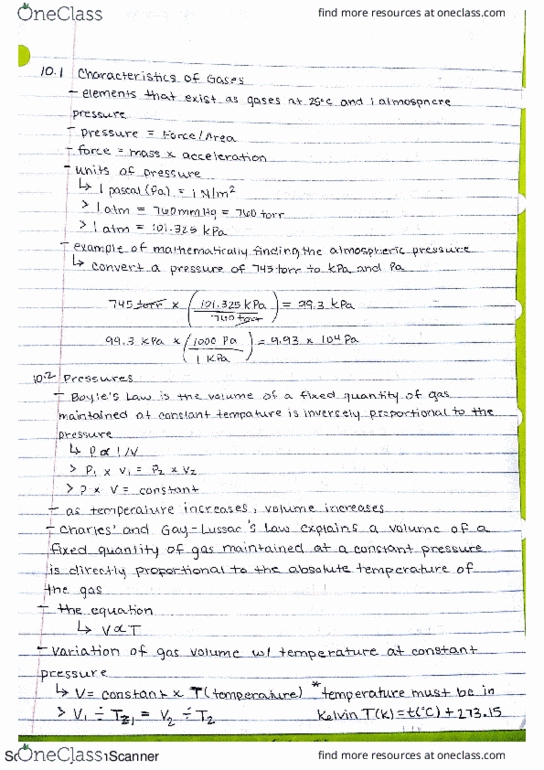 OneClass find more resources at oneclass.com
10.1 Characteristics of Gases
- elements that exist as gases at 25°C and 1 atmosphere
pressure
- pressure = Force/Area
- force = mass x acceleration
- units of pressure
↳ 1 pascal (Pa) = 1 N/m²
> 1 atm = 760mmHg = 760 torr
> 1 atm = 101.325 kPa
- example of mathematically finding the atmospheric pressure
↳ convert a pressure of 745 torr to kPa and Pa
745 torr x (101.325 kPa / 760 torr) = 99.3 kPa
99.3 kPa x (1000 Pa / 1 kPa) = 9.93 x 104 Pa
10.2 Pressures
- Boyle's Law is the volume of a fixed quantity of gas
maintained at constant tempature is inversely proportional to the
pressure
↳ P ∝ 1/V
> P₁ x V₁ = P₂ x V₂
> P x V = constant
- as temperature increases, volume increases
- Charles' and Gay-Lussac's Law explains a volume of a
fixed quantity of gas maintained at a constant pressure
is directly proportional to the absolute temperature of
the gas
- the equation
↳ V ∝ T
- variation of gas volume w/ temperature at constant
pressure
↳ V = constant x T (temperature) *temperature must be in
> V₁ ÷ T₁ = V₂ ÷ T₂ Kelvin T(K) = t(°C) + 273.15
OneClass Scanner find more resources at oneclass.com